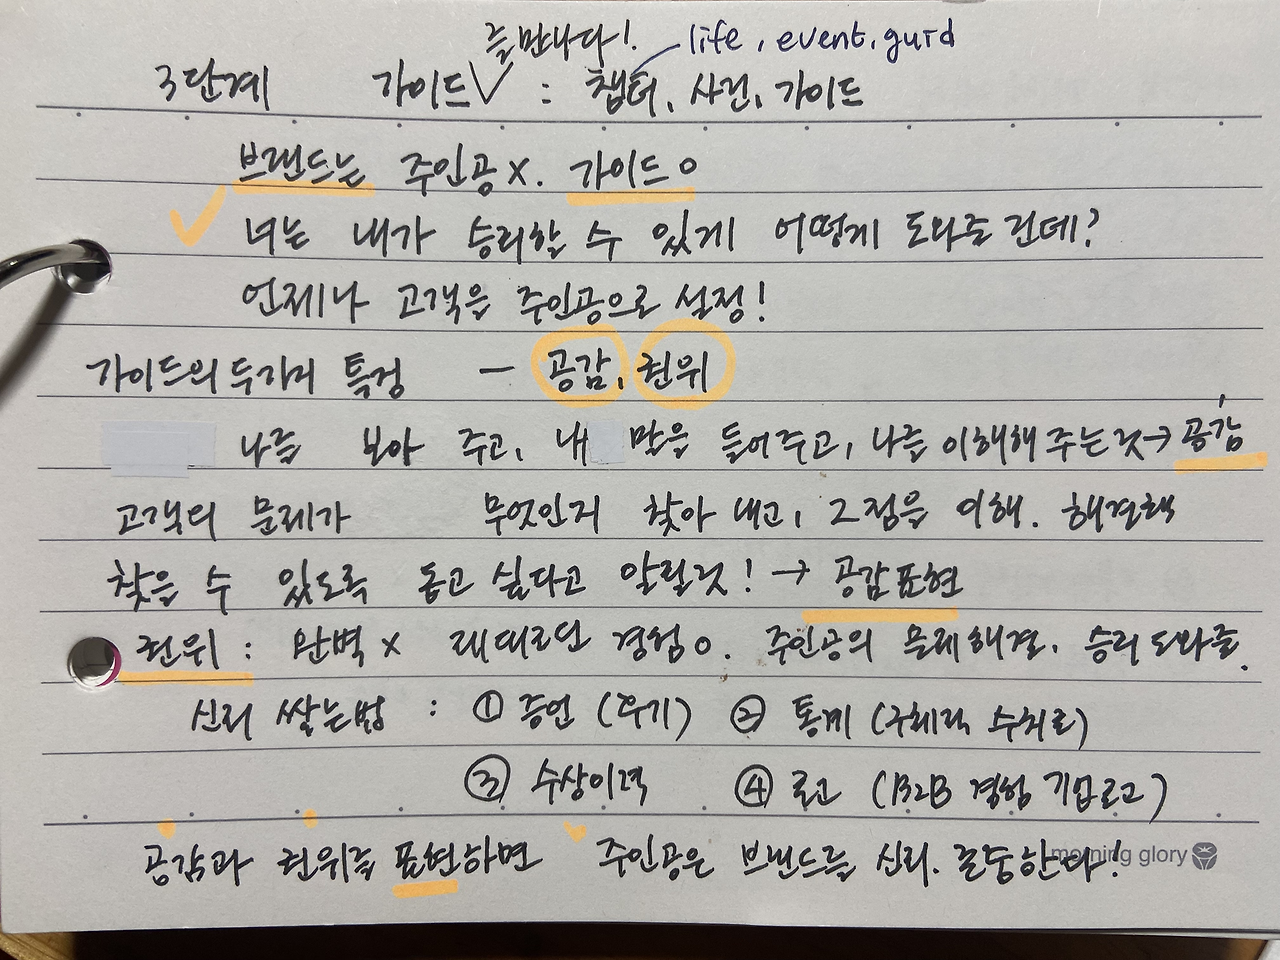 를 만나다!. life, event, guid
3단계 가이드 : 챕터, 사건, 가이드
브랜드는 주인공 x. 가이드 o
너는 내가 승리할 수 있게 어떻게 도와줄 건데?
언제나 고객을 주인공으로 설정!
가이드의 두가지 특징 - 공감, 권위
나를 보아 주고, 내 말을 들어주고, 나를 이해해 주는 것→ 공감
고객의 문제가 무엇인지 찾아 내고, 그 점을 이해. 해결책
찾을 수 있도록 돕고 싶다고 알릴것! → 공감표현
권위 : 완벽 x 제대로된 경험o. 주인공의 문제해결. 승리 도와줄.
신뢰 쌓는법 : ① 증언 (후기) ② 통계 (구체적 수치로)
③ 수상이력 ④ 로고 (B2B 경험 기업로고)
공감과 권위를 표현하면 주인공은 브랜드를 신뢰. 존중한다!
morning glory